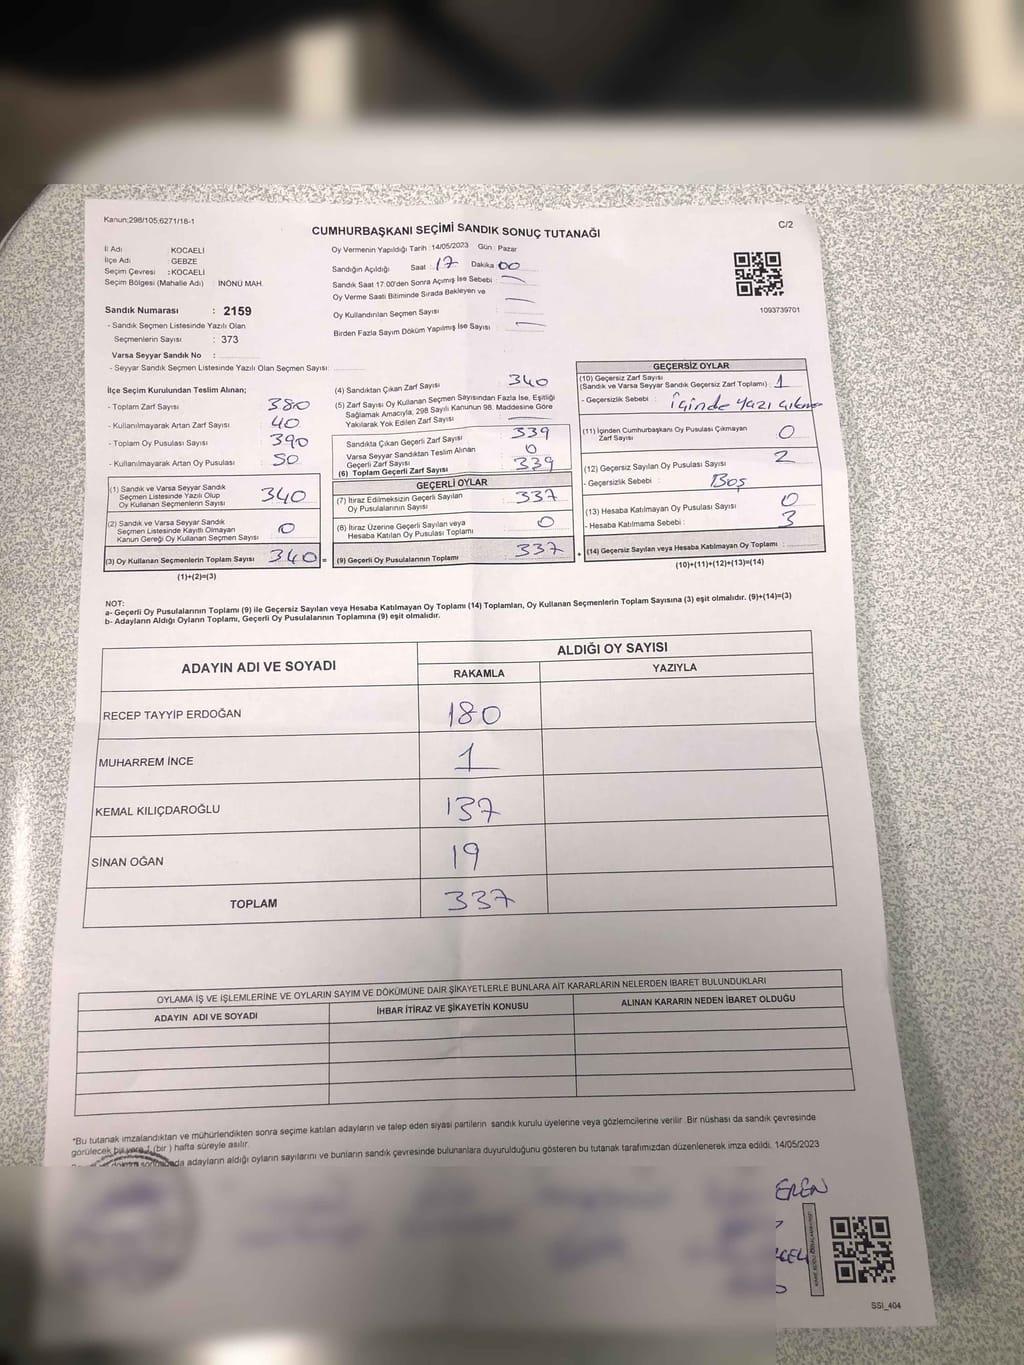 Kanun:298/105;6271/18-1
C/2
CUMHURBAŞKANI SEÇİMİ SANDIK SONUÇ TUTANAĞI
İl Adı : KOCAELİ
İlçe Adı : GEBZE
Seçim Çevresi : KOCAELİ
Seçim Bölgesi (Mahalle Adı) : İNÖNÜ MAH.
Sandık Numarası : 2159
- Sandık Seçmen Listesinde Yazılı Olan
Seçmenlerin Sayısı : 373
Varsa Seyyar Sandık No :
- Seyyar Sandık Seçmen Listesinde Yazılı Olan Seçmen Sayısı:
Oy Vermenin Yapıldığı Tarih :14/05/2023 Gün : Pazar
Sandığın Açıldığı Saat : 17 Dakika 00
Sandık Saat 17:00'den Sonra Açımış İse Sebebi : —
Oy Verme Saati Bitiminde Sırada Bekleyen ve
Oy Kullandırılan Seçmen Sayısı : —
Birden Fazla Sayım Döküm Yapılmış İse Sayısı : —
1093739701
İlçe Seçim Kurulundan Teslim Alınan;
- Toplam Zarf Sayısı 380
- Kullanılmayarak Artan Zarf Sayısı 40
- Toplam Oy Pusulası Sayısı 390
- Kullanılmayarak Artan Oy Pusulası 50
(1) Sandık ve Varsa Seyyar Sandık
Seçmen Listesinde Yazılı Olup
Oy Kullanan Seçmenlerin Sayısı 340
(2) Sandık ve Varsa Seyyar Sandık
Seçmen Listesinde Kayıtlı Olmayan
Kanun Gereği Oy Kullanan Seçmen Sayısı 0
(3) Oy Kullanan Seçmenlerin Toplam Sayısı 340 =
(1)+(2)=(3)
(4) Sandıktan Çıkan Zarf Sayısı 340
(5) Zarf Sayısı Oy Kullanan Seçmen Sayısından Fazla İse, Eşitliği
Sağlamak Amacıyla, 298 Sayılı Kanunun 98. Maddesine Göre
Yakılarak Yok Edilen Zarf Sayısı —
Sandıkta Çıkan Geçerli Zarf Sayısı 339
Varsa Seyyar Sandıktan Teslim Alınan
Geçerli Zarf Sayısı 0
(6) Toplam Geçerli Zarf Sayısı 339
GEÇERLİ OYLAR
(7) İtiraz Edilmeksizin Geçerli Sayılan
Oy Pusulalarının Sayısı 337
(8) İtiraz Üzerine Geçerli Sayılan veya
Hesaba Katılan Oy Pusulası Toplamı 0
(9) Geçerli Oy Pusulalarının Toplamı 337 +
GEÇERSİZ OYLAR
(10) Geçersiz Zarf Sayısı
(Sandık ve Varsa Seyyar Sandık Geçersiz Zarf Toplamı) : 1
- Geçersizlik Sebebi : İçinde yazı çıkması
(11) İçinden Cumhurbaşkanı Oy Pusulası Çıkmayan
Zarf Sayısı 0
(12) Geçersiz Sayılan Oy Pusulası Sayısı 2
- Geçersizlik Sebebi : Boş
(13) Hesaba Katılmayan Oy Pusulası Sayısı 0
- Hesaba Katılmama Sebebi : 3
(14) Geçersiz Sayılan veya Hesaba Katılmayan Oy Toplamı :
(10)+(11)+(12)+(13)=(14)
NOT:
a- Geçerli Oy Pusulalarının Toplamı (9) ile Geçersiz Sayılan veya Hesaba Katılmayan Oy Toplamı (14) Toplamları, Oy Kullanan Seçmenlerin Toplam Sayısına (3) eşit olmalıdır. (9)+(14)=(3)
b- Adayların Aldığı Oyların Toplamı, Geçerli Oy Pusulalarının Toplamına (9) eşit olmalıdır.
ADAYIN ADI VE SOYADI
ALDIĞI OY SAYISI
RAKAMLA YAZIYLA
RECEP TAYYİP ERDOĞAN 180
MUHARREM İNCE 1
KEMAL KILIÇDAROĞLU 137
SİNAN OĞAN 19
TOPLAM 337
OYLAMA İŞ VE İŞLEMLERİNE VE OYLARIN SAYIM VE DÖKÜMÜNE DAİR ŞİKAYETLERLE BUNLARA AİT KARARLARIN NELERDEN İBARET BULUNDUKLARI
ADAYIN ADI VE SOYADI İHBAR İTİRAZ VE ŞİKAYETİN KONUSU ALINAN KARARIN NEDEN İBARET OLDUĞU
*Bu tutanak imzalandıktan ve mühürlendikten sonra seçime katılan adayların ve talep eden siyasi partilerin sandık kurulu üyelerine veya gözlemcilerine verilir. Bir nüshası da sandık çevresinde
görülecek bir yere 1 (bir ) hafta süreyle asılır.
adayların aldığı oyların sayılarını ve bunların sandık çevresinde bulunanlara duyurulduğunu gösteren bu tutanak tarafımızdan düzenlenerek imza edildi. 14/05/2023
EREN
SSI_404